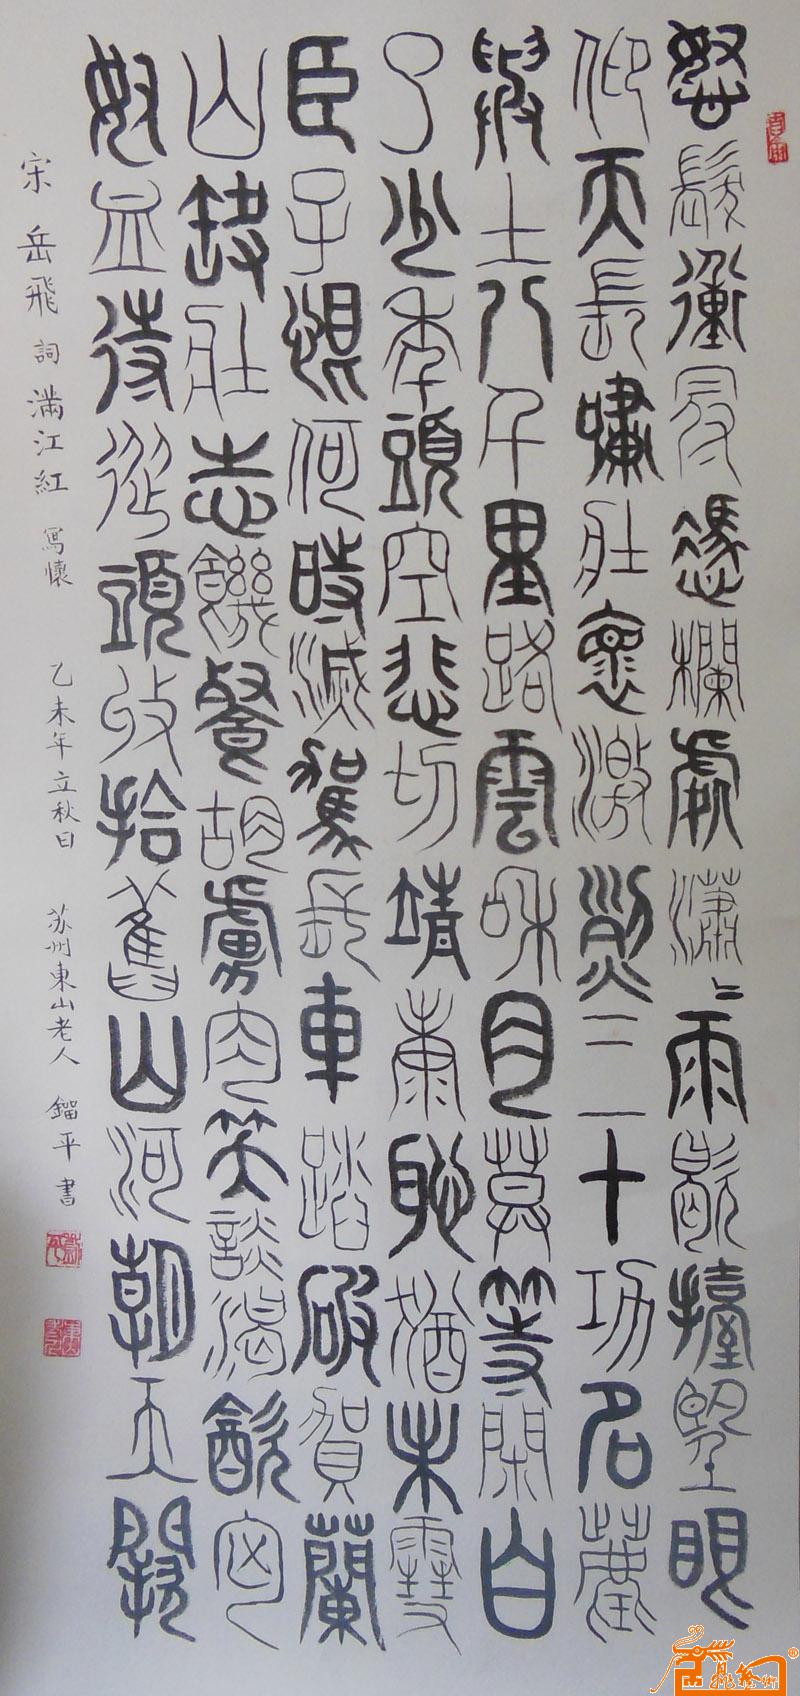 怒髮衝冠憑欄處瀟〻雨歇擡望眼
仰天長嘯壯懷激烈三十功名塵
與土八千里路雲和月莫等閒白
了少年頭空悲切靖康恥猶未雪
臣子恨何時滅駕長車踏破賀蘭
山缺壯志饑餐胡虜肉笑談渴飲匈
奴血待從頭收拾舊山河朝天闕
宋 岳飛 詞 滿江紅 寫懷 乙未年立秋日 苏州東山老人 鎦平書